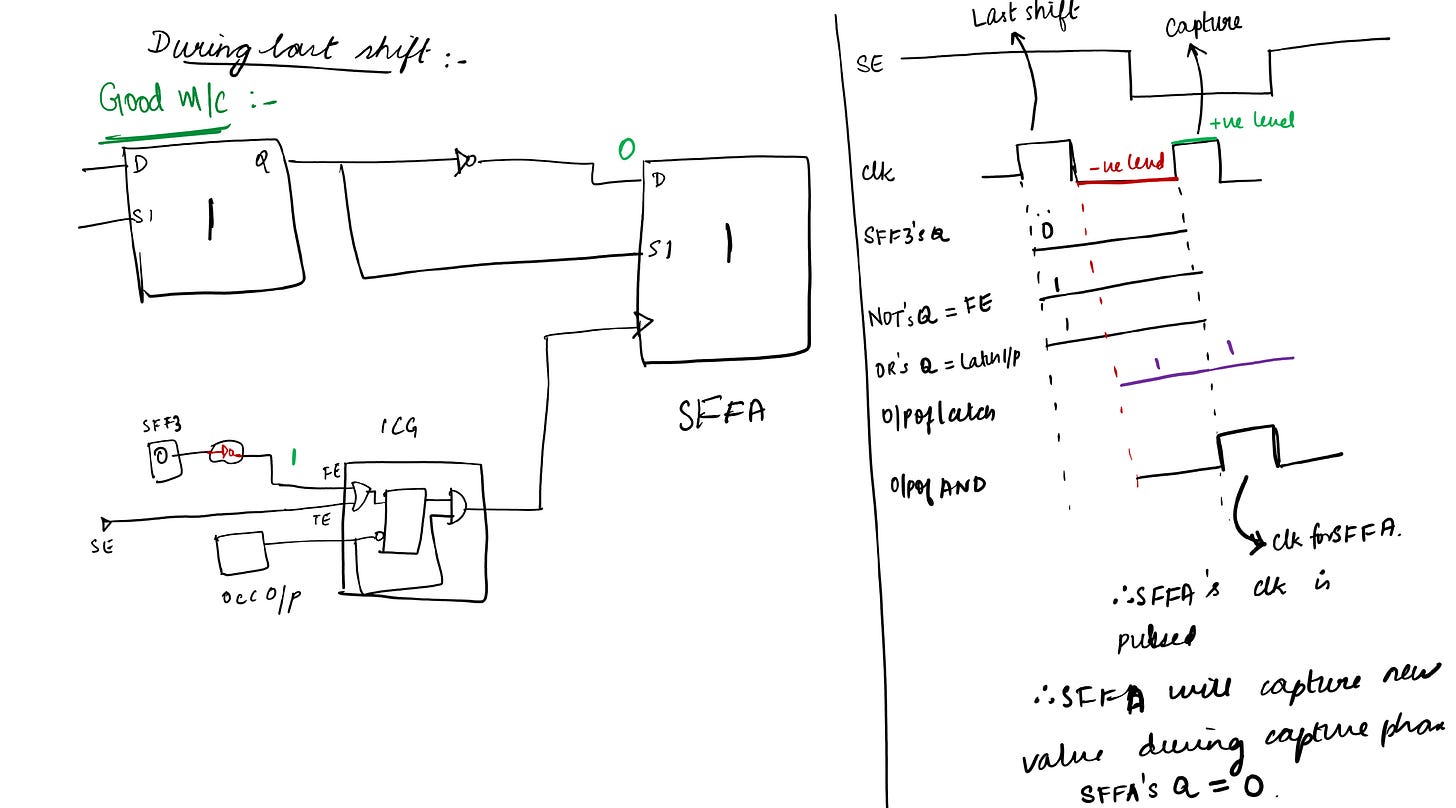 During last shift :-
Good M/C :-
D
Q
S1
1
0
D
S1
1
SFFA
SFF3
0
1
ICG
FE
TE
SE
OCC O/p
Last shift
Capture
SE
+ve level
clk
-ve level
SFF3's Q
0
NOT's Q = FE
1
OR's Q = Latch I/p
1
O/p of latch
1 1
O/p of AND
clk for SFFA.
∴ SFFA's clk is
pulsed
∴ SFFA will capture new
value during capture phase
SFFA's Q = 0.